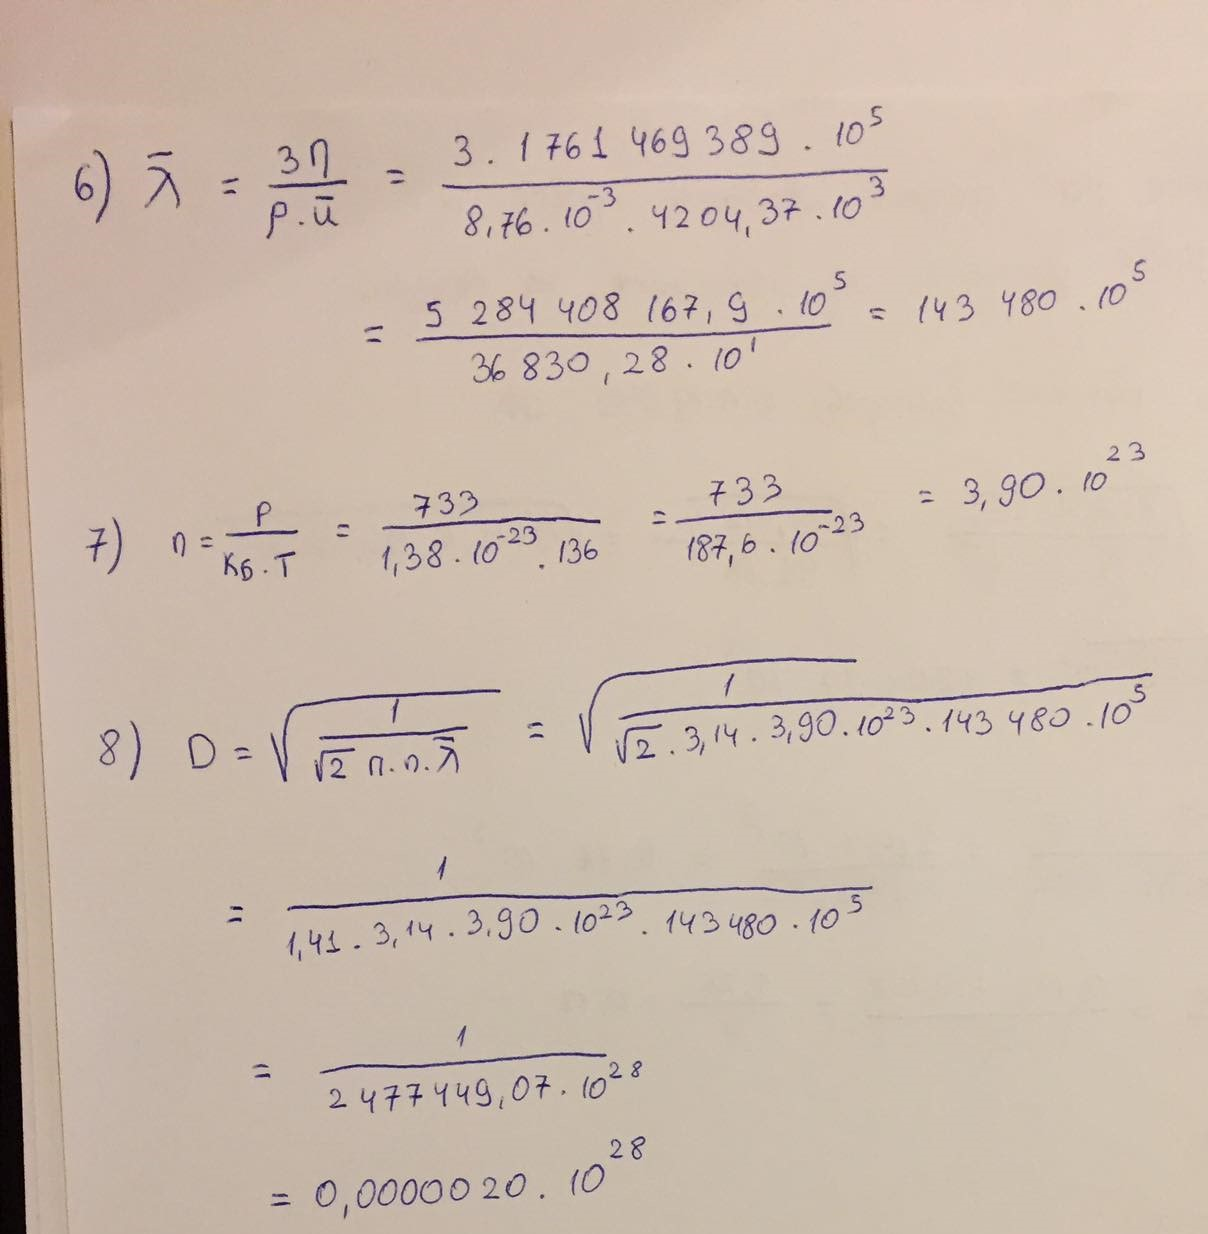 6) λ̄ = 3η / ρ.ū = 3 . 1 761 469 389 . 10⁵ / 8,76 . 10⁻³ . 4204,37 . 10³
= 5 284 408 167,9 . 10⁵ / 36 830,28 . 10¹ = 143 480 . 10⁵
7) n = P / Kб . T = 733 / 1,38 . 10⁻²³ . 136 = 733 / 187,6 . 10⁻²³ = 3,90 . 10²³
8) D = √(1 / √2 п.n.λ̄) = √(1 / √2 . 3,14 . 3,90 . 10²³ . 143 480 . 10⁵)
= 1 / 1,41 . 3,14 . 3,90 . 10²³ . 143 480 . 10⁵
= 1 / 2 477 449,07 . 10²⁸
= 0,0000020 . 10²⁸